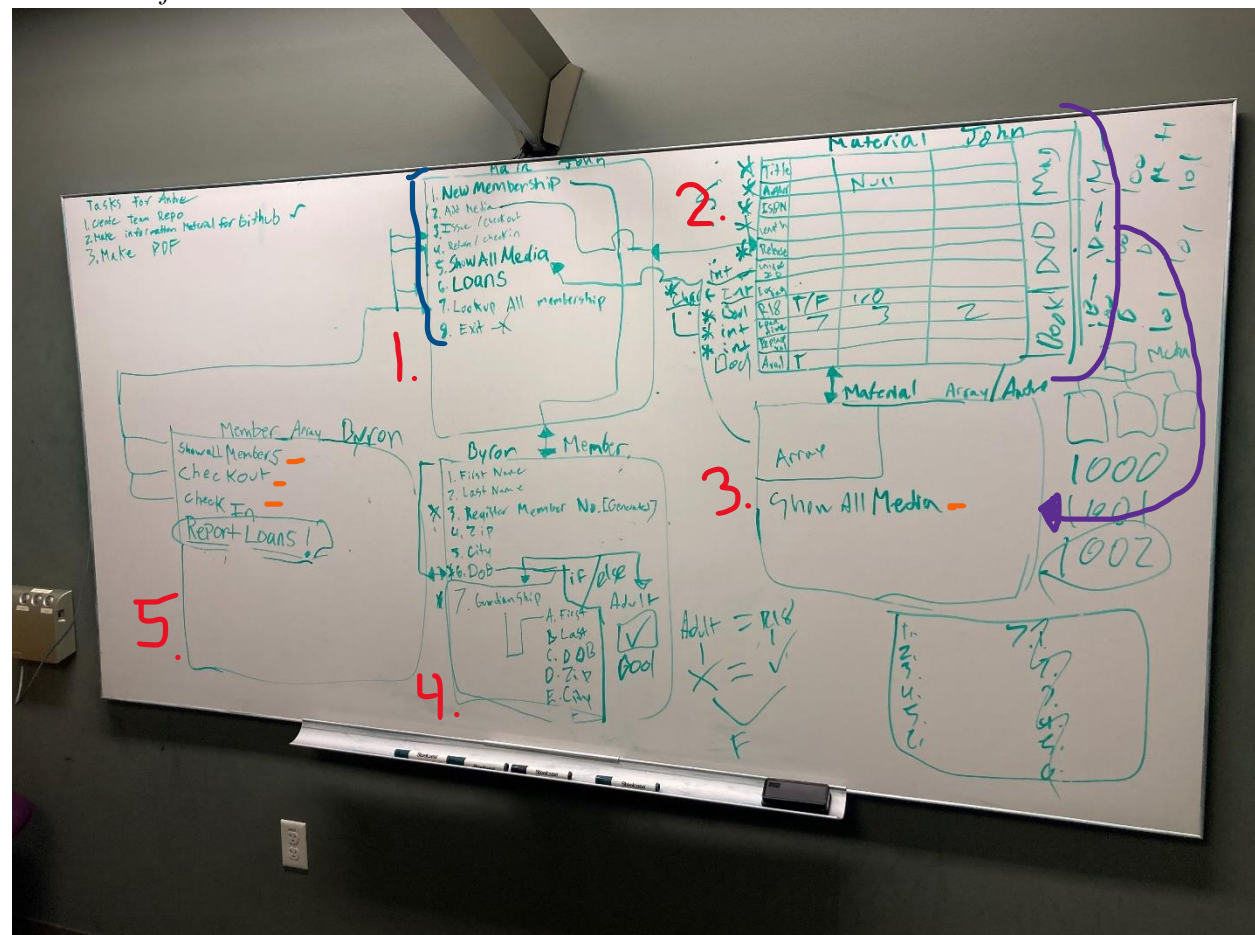 Tasks for Andre
1. Create Team Repo
2. Make information Material for Github ✓
3. Make PDF
Main John
1. New Membership
2. Add Media
3. Issue / checkout
4. Return / checkin
5. Show All Media
6. Loans
7. Lookup All membership
8. Exit
1.
Material John
2.
Title
Null
ISBN
Length
Release
int
R18 T/F 1/0
7 3 2
int
int
Bool
Avail T
Mag
DVD
Book
Material Array/Andre
3.
Array
Show All Media
1000
1001
1002
Member Array Byron
Show all Members
Checkout
Check In
Report Loans!
5.
Byron Member
1. First Name
2. Last Name
3. Register Member No. [Generated]
4. Zip
5. City
6. DoB
if/else
7. Guardianship
Adult
A. First
B. Last
C. DOB
D. Zip
E. City
Bool
4.
Adult = R18
X = ✓
F
1.
2.
3.
4.
5.